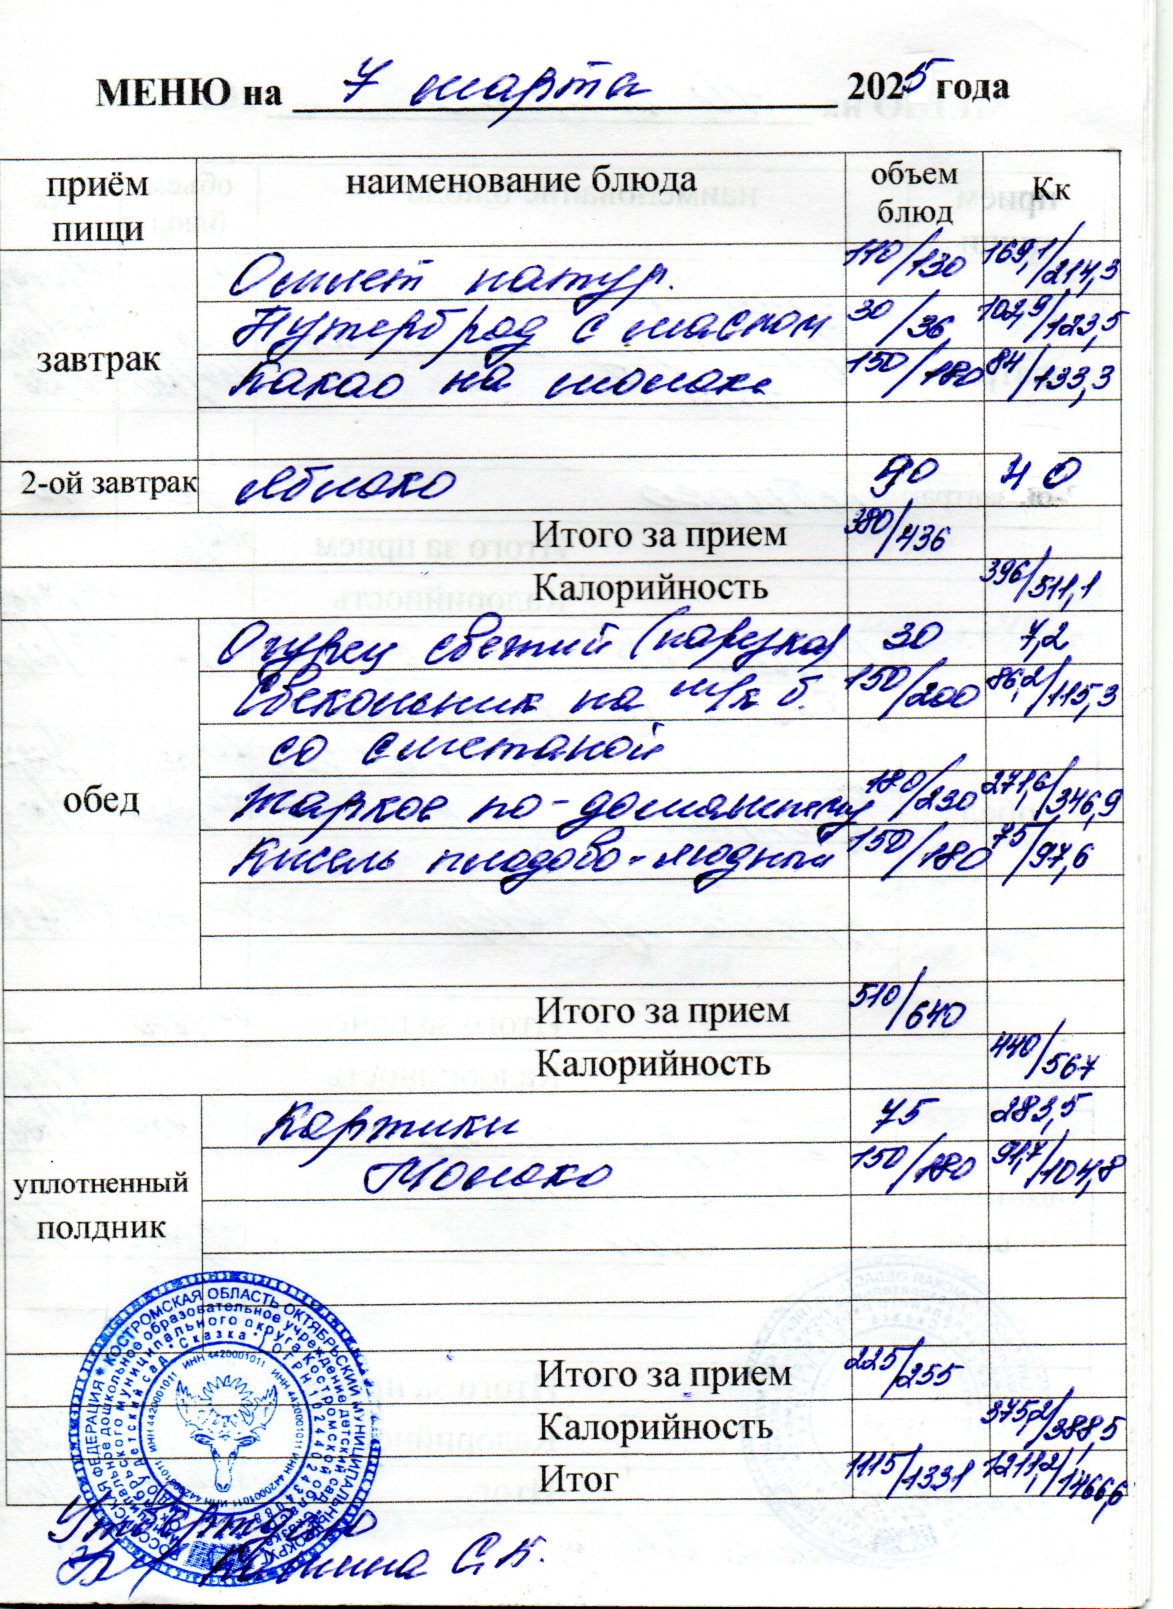 МЕНЮ на 7 марта 2025 года
приём пищи наименование блюда объем блюд Кк
завтрак
Омлет натур. 110/130 169,1/214,3
Бутерброд с маслом 30/36 102,9/123,5
Какао на молоке 150/180 84/133,3
2-ой завтрак Яблоко 90 40
Итого за прием 380/436
Калорийность 396/511,1
обед
Огурец свежий (нарезка) 30 7,2
Свекольник на м/к б. 150/200 86,2/115,3
со сметаной
Жаркое по-домашнему 180/230 271,6/346,9
Кисель плодово-ягодный 150/180 75/97,6
Итого за прием 510/640
Калорийность 440/567
уплотненный полдник
Коржики 75 283,5
Молоко 150/180 91,7/104,8
Итого за прием 225/255
Калорийность 375,2/388,5
Итог 1115/1331 1211,2/1466,6
РОССИЙСКАЯ ФЕДЕРАЦИЯ * КОСТРОМСКАЯ ОБЛАСТЬ ОКТЯБРЬСКИЙ МУНИЦИПАЛЬНЫЙ ОКРУГ
дошкольное образовательное учреждение детский сад
муниципального округа Костромской
детский сад "Сказка"
ИНН 4420001011 ИНН 4420001011 ИНН 4420001011
Утверждаю
Калинина С.В.